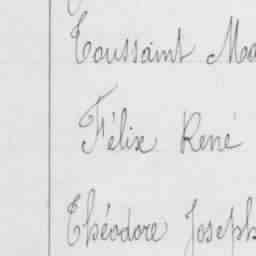 Toussaint Ma
Félix René
Théodore Joseph